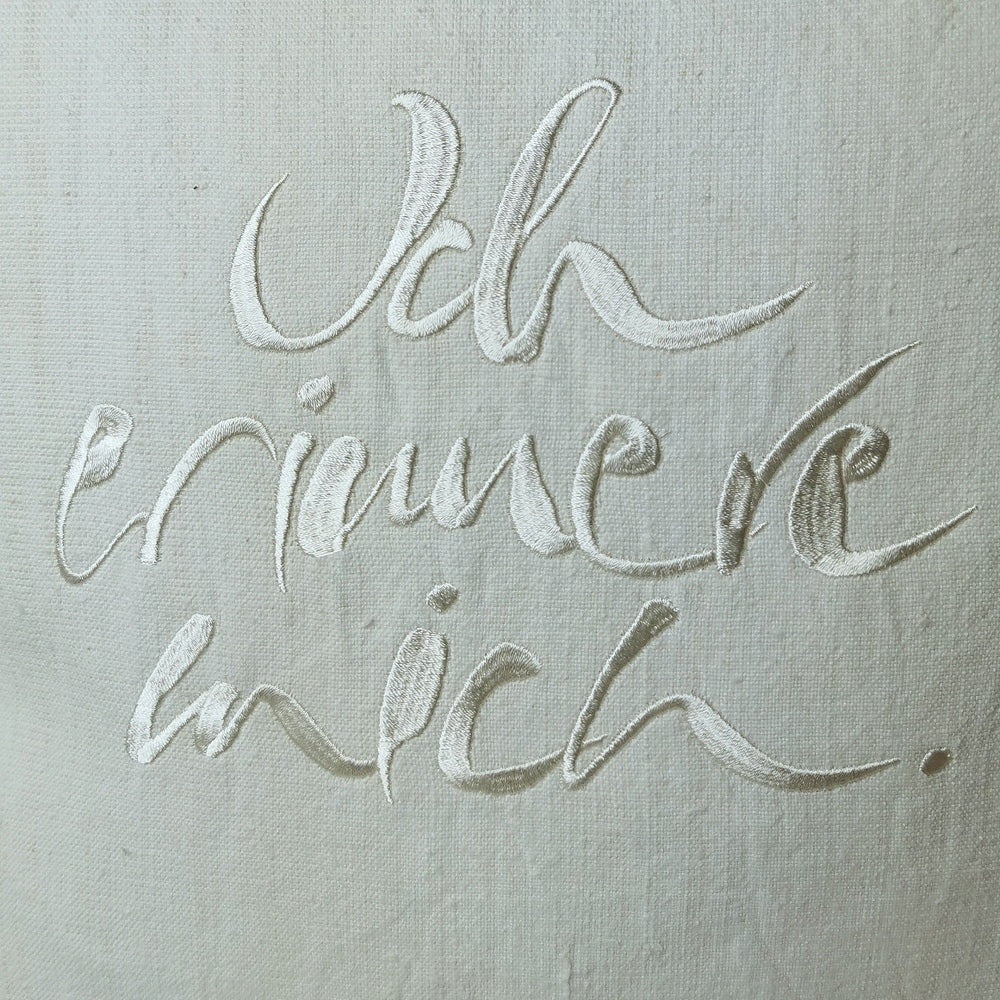 Ich
erinnere
mich.